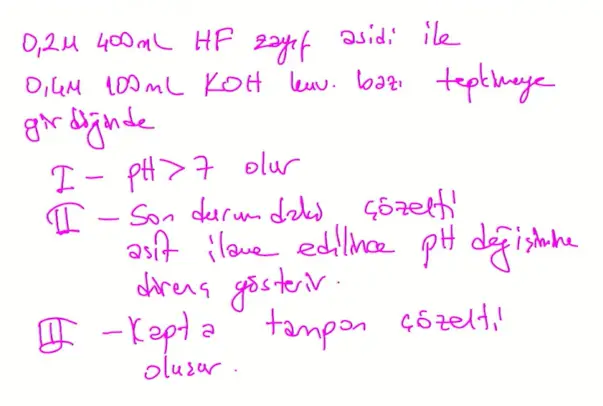 0,2M 400mL HF zayıf asidi ile
0,4M 100mL KOH kuv. bazı tepkimeye
girdiğinde
I - pH > 7 olur
II - Son durumdaki çözelti
asit ilave edilince pH değişimine
direnç gösterir.
III - Kapta tampon çözelti
oluşur.